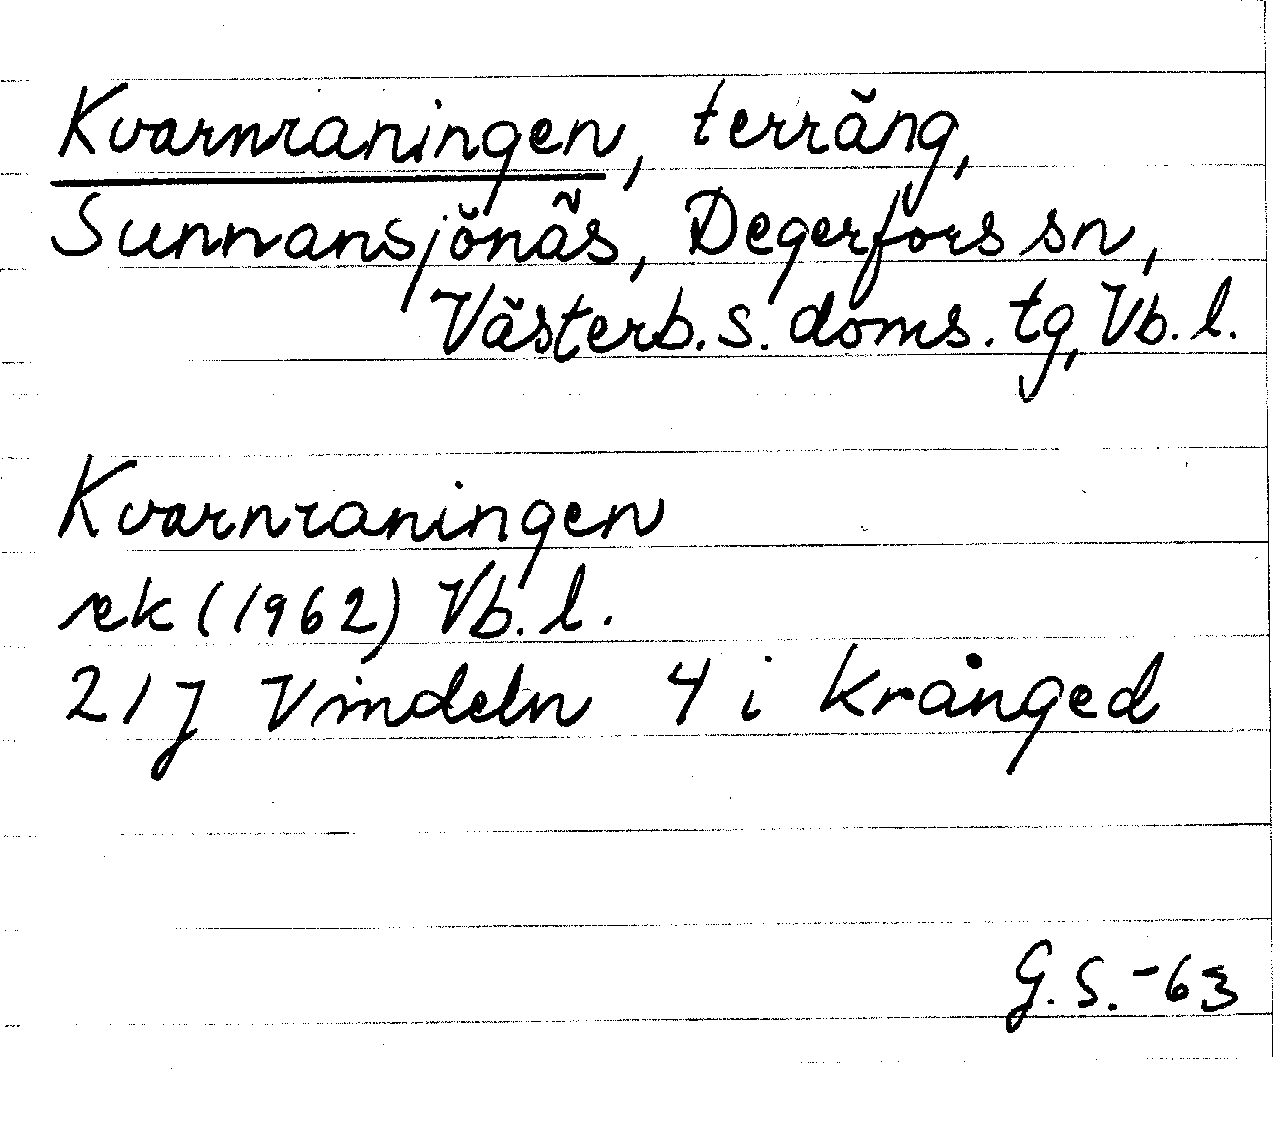 Kvarnraningen, terräng,
Sunnansjönäs, Degerfors sn,
Västerb. s. doms. tg, Vb. l.
Kvarnraningen
rek (1962) Vb. l.
21J Vindeln 4 i Krånged
G.S.-63